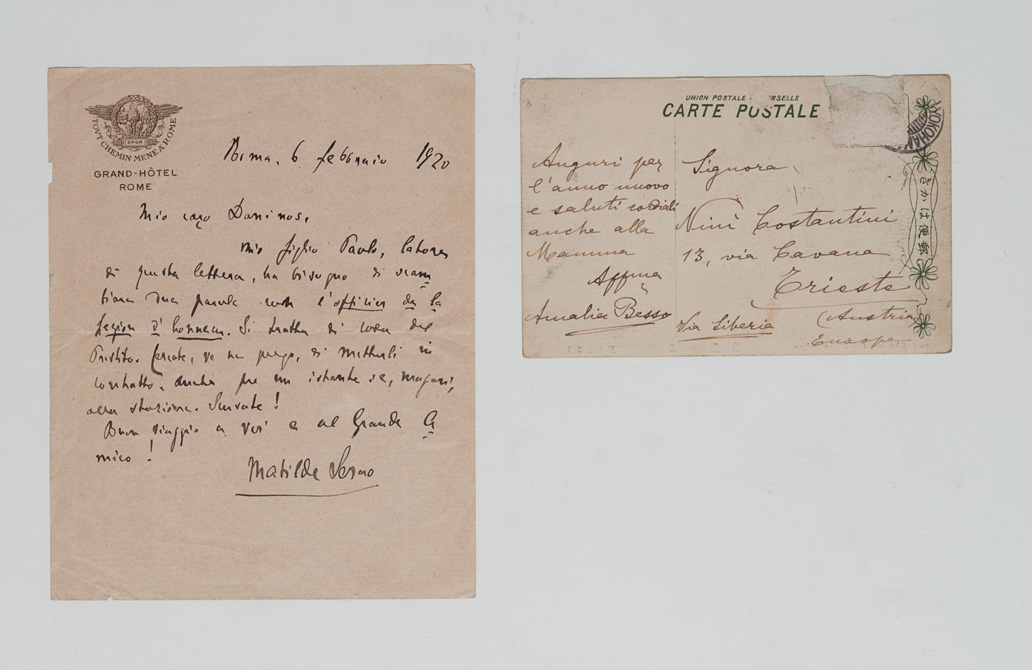 S.P.Q.R.
TOVT CHEMIN MENE A ROME
GRAND-HÔTEL
ROME
Roma, 6 febbraio 1920
Mio caro Daninos,
mio figlio Paolo, latore
di questa lettera, ha bisogno di scam
biare due parole con l'officier de la
légion d'honneur. Si tratta di cosa del
Prestito. Cercate, ve ne prego, di metterli in
contatto, anche per un istante se, magari,
alla stazione. Scusate!
Buon viaggio a voi e al Grande A
mico!
Matilde Serao
UNION POSTALE RSELLE
CARTE POSTALE
YOKOHAMA
きかは便郵
Auguri per
l'anno nuovo
e saluti cordiali
anche alla
Mamma
Affma
Amalia Besso
Signora
Ninì Costantini
13, via Cavana
Trieste
Via Siberia
(Austria
Europa